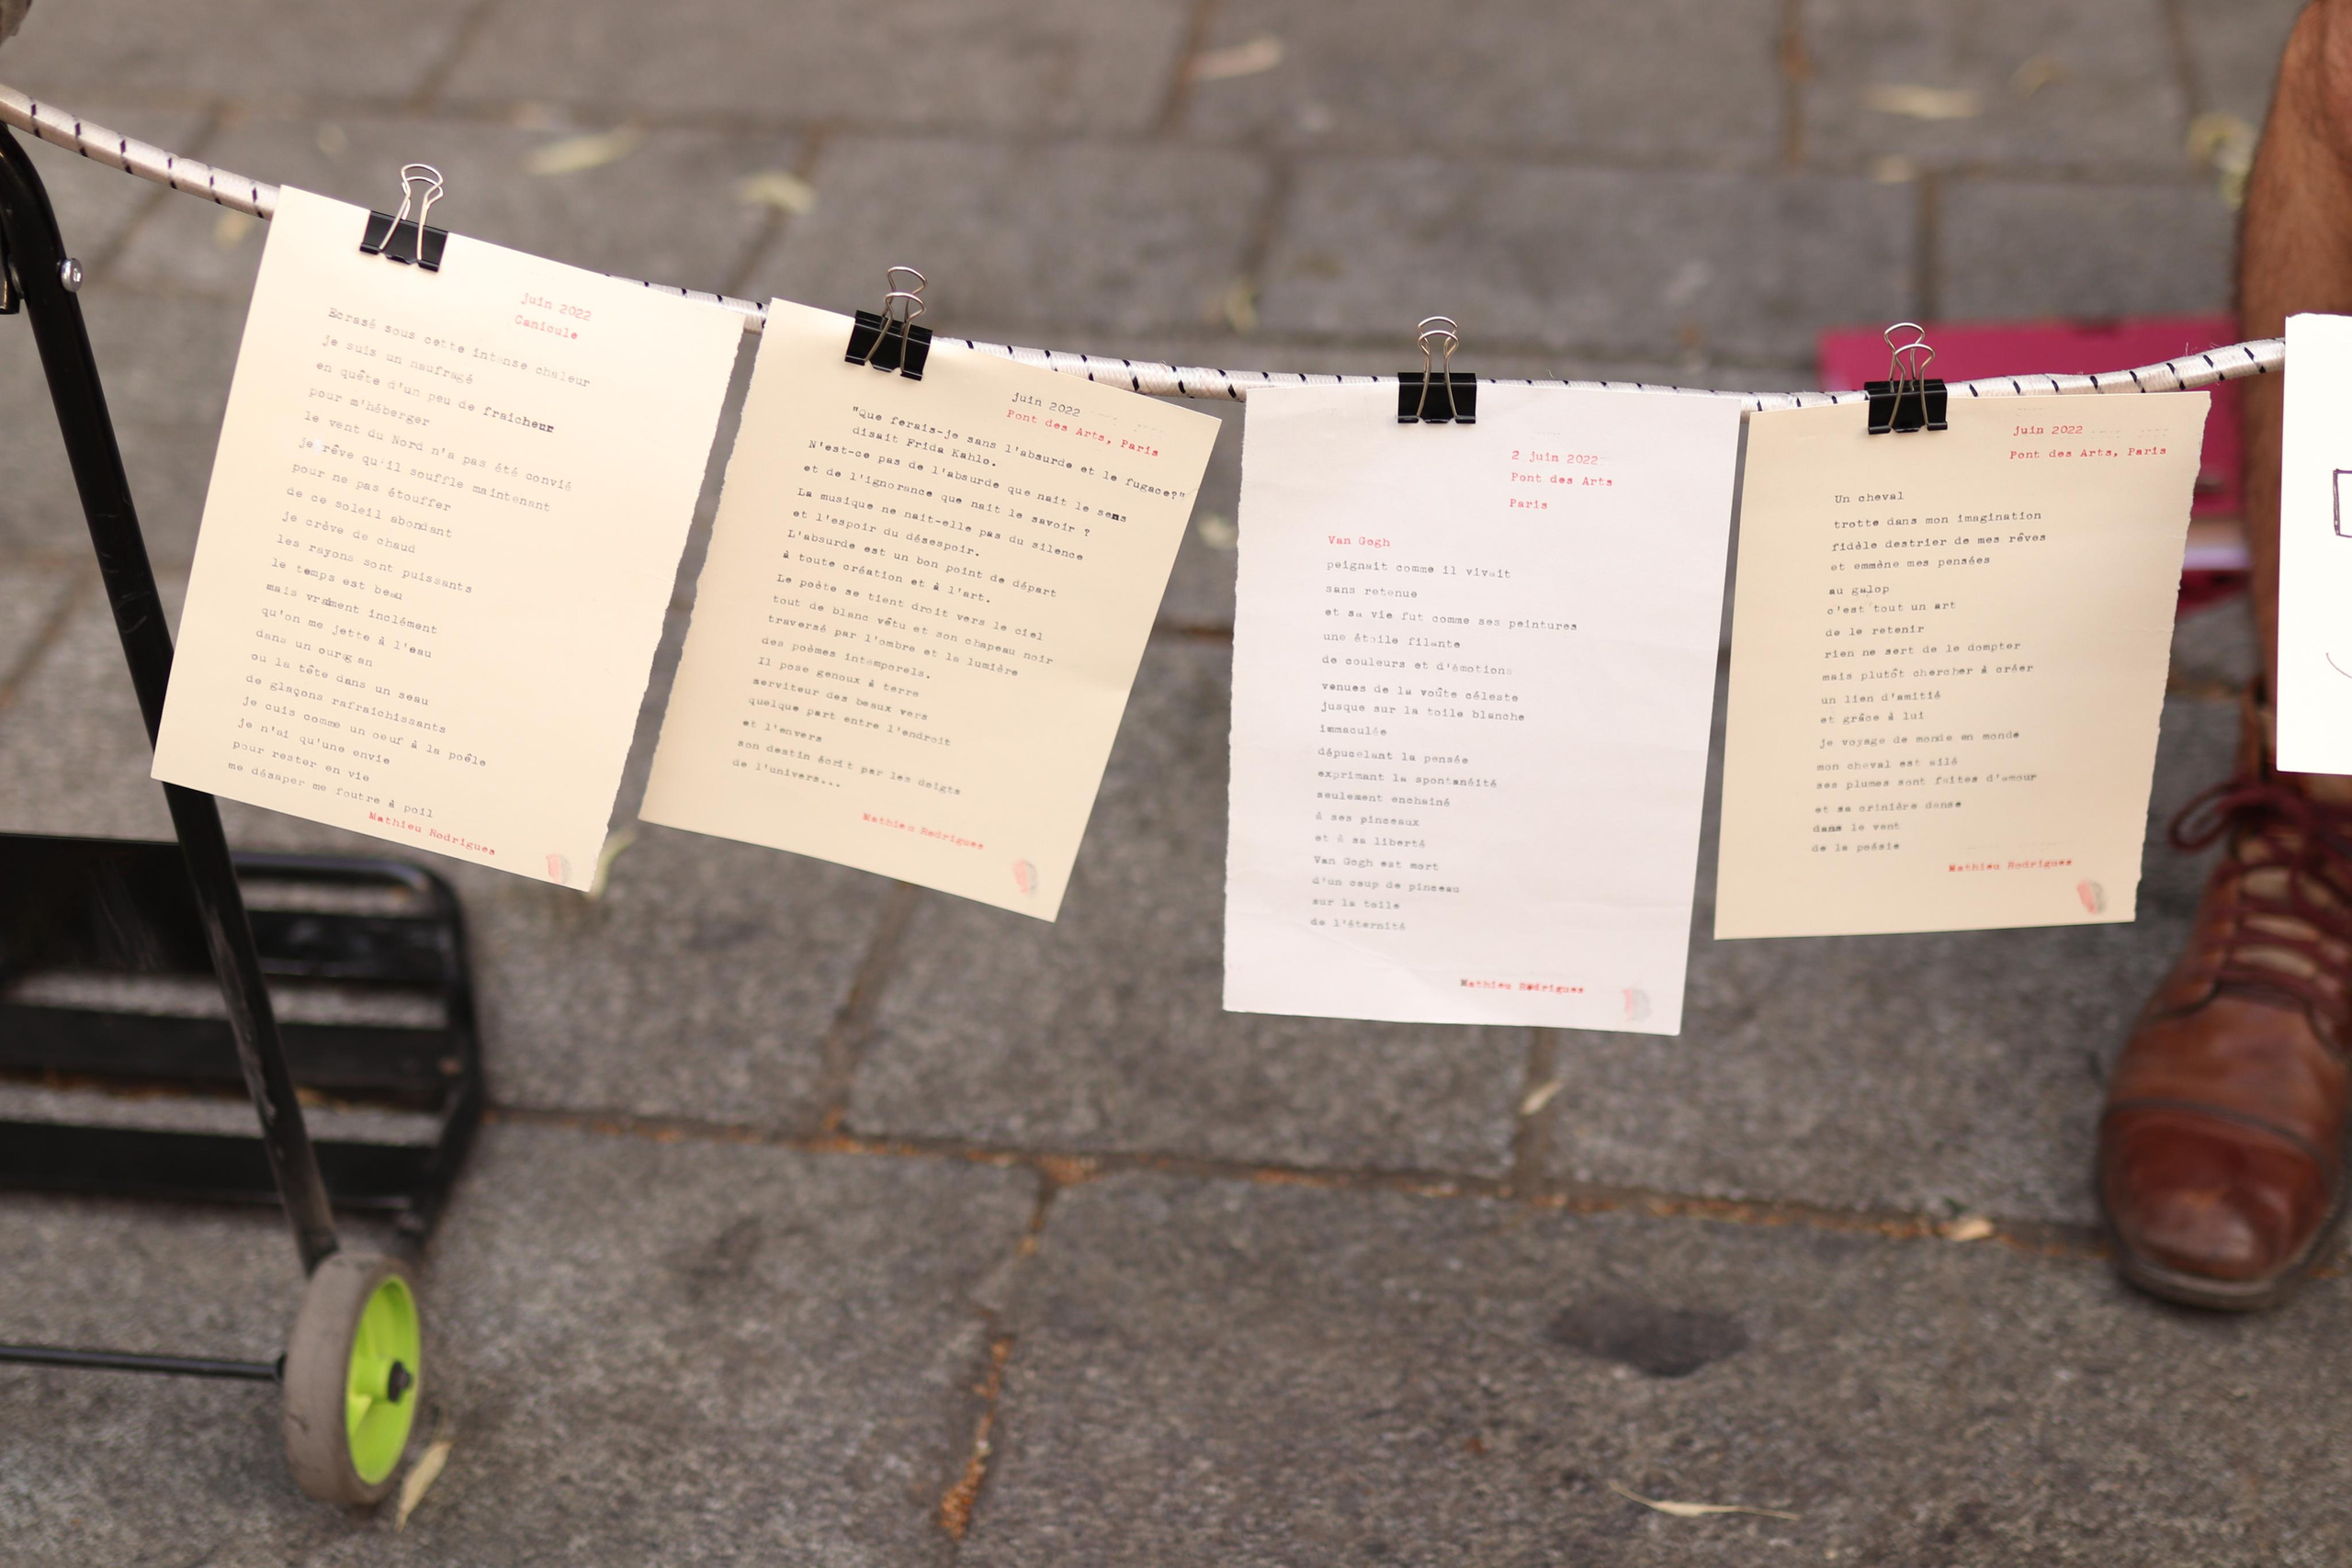 juin 2022
Canicule
Ecrasé sous cette intense chaleur
je suis un naufragé
en quête d'un peu de fraicheur
pour m'héberger
le vent du Nord n'a pas été convié
je rêve qu'il souffle maintenant
pour ne pas étouffer
de ce soleil abondant
je crève de chaud
les rayons sont puissants
le temps est beau
mais vrament inclément
qu'on me jette à l'eau
dans un ouragan
ou la tête dans un seau
de glaçons rafraichissants
je cuis comme un oeuf à la poêle
je n'ai qu'une envie
pour rester en vie
me désaper me foutre à poil
Mathieu Rodrigues
juin 2022
Pont des Arts, Paris
"Que ferais-je sans l'absurde et le fugace?"
disait Frida Kahlo.
N'est-ce pas de l'absurde que nait le sens
et de l'ignorance que nait le savoir ?
La musique ne nait-elle pas du silence
et l'espoir du désespoir.
L'absurde est un bon point de départ
à toute création et à l'art.
Le poète se tient droit vers le ciel
tout de blanc vêtu et son chapeau noir
traversé par l'ombre et la lumière
des poèmes intemporels.
Il pose genoux à terre
serviteur des beaux vers
quelque part entre l'endroit
et l'envers
son destin écrit par les doigts
de l'univers...
Mathieu Rodrigues
2 juin 2022
Pont des Arts
Paris
Van Gogh
peignait comme il vivait
sans retenue
et sa vie fut comme ses peintures
une étoile filante
de couleurs et d'émotions
venues de la voûte céleste
jusque sur la toile blanche
immaculée
dépucelant la pensée
exprimant la spontanéité
seulement enchainé
à ses pinceaux
et à sa liberté
Van Gogh est mort
d'un coup de pinceau
sur la toile
de l'éternité
Mathieu Rodrigues
juin 2022
Pont des Arts, Paris
Un cheval
trotte dans mon imagination
fidèle destrier de mes rêves
et emmène mes pensées
au galop
c'est tout un art
de le retenir
rien ne sert de le dompter
mais plutôt chercher à créer
un lien d'amitié
et grâce à lui
je voyage de monde en monde
mon cheval est ailé
ses plumes sont faites d'amour
et sa crinière danse
dans le vent
de la poésie
Mathieu Rodrigues